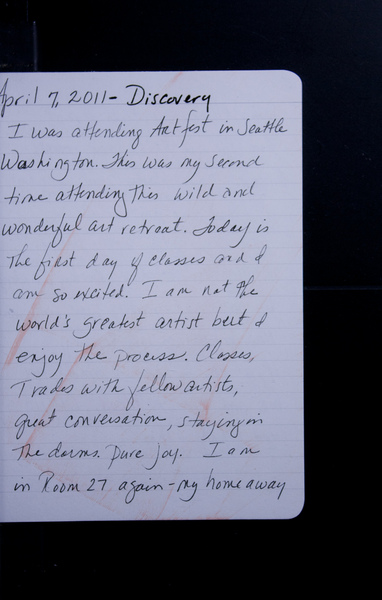 April 7, 2011 - Discovery
I was attending Artfest in Seattle
Washington. This was my second
time attending this wild and
wonderful art retreat. Today is
the first day of classes and I
am so excited. I am not the
world's greatest artist but I
enjoy the process. Classes,
Trades with fellow artists,
great conversation, staying in
the dorms. Pure joy. I am
in Room 27 again - my home away